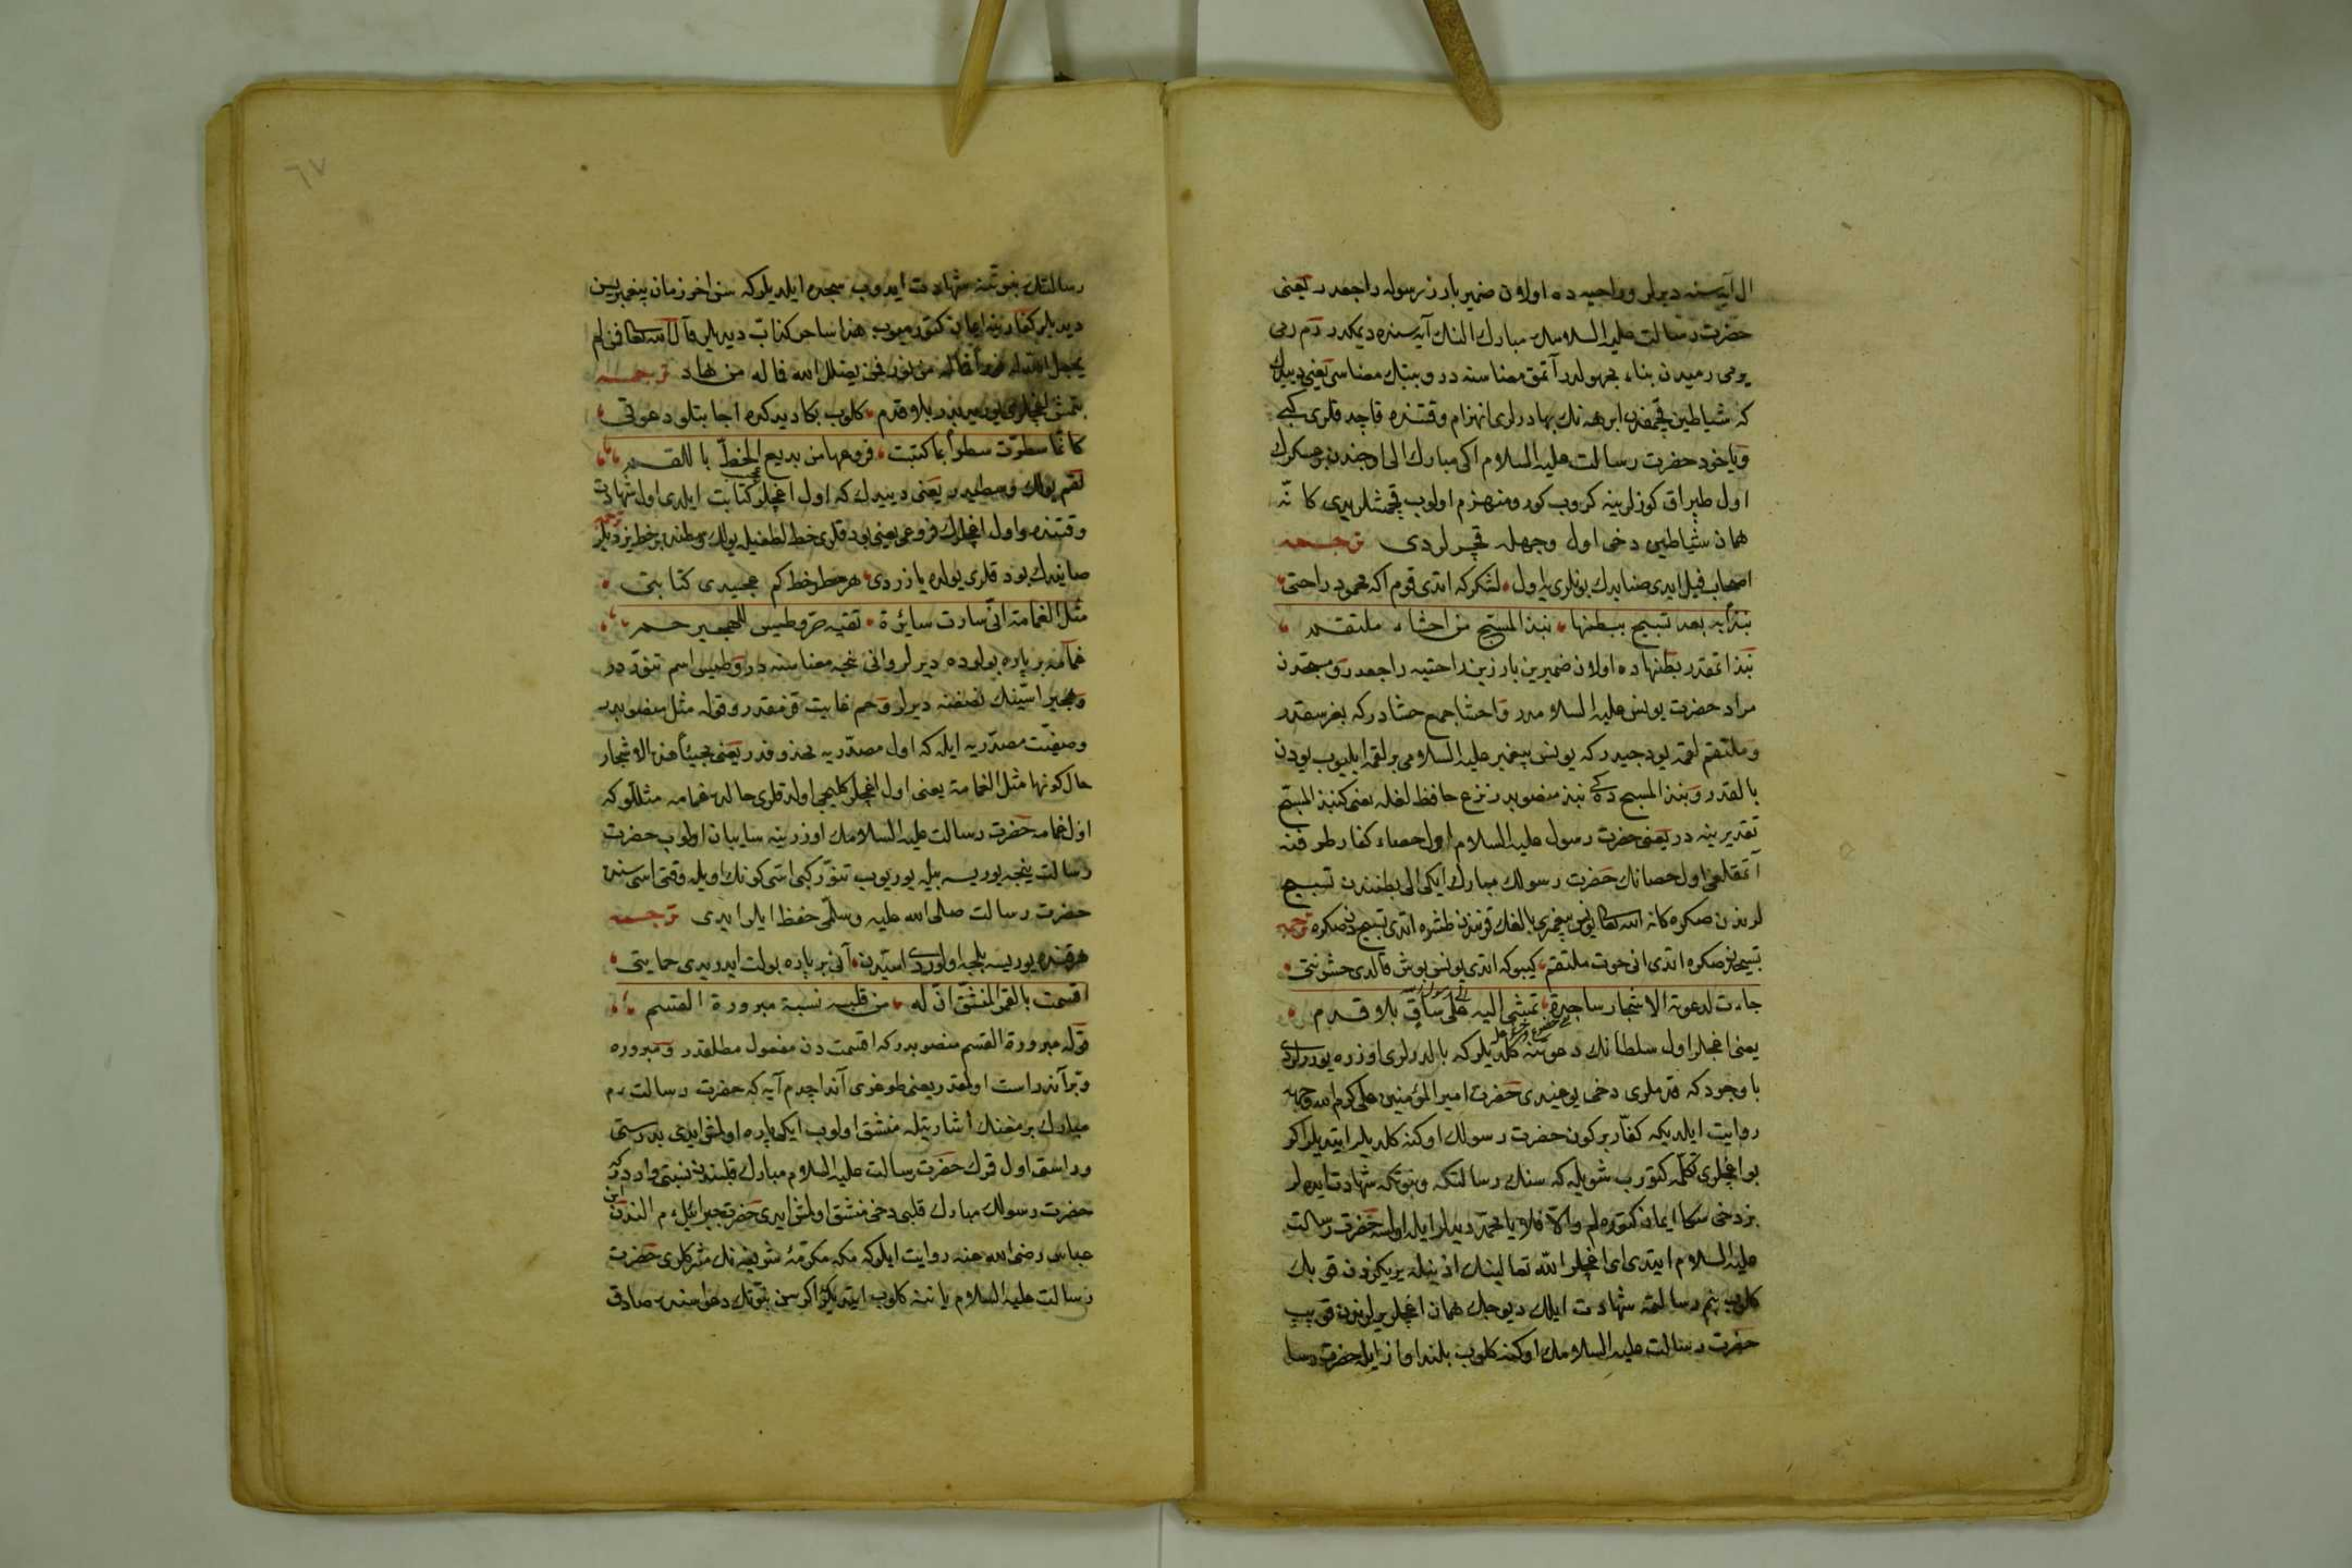 ال آیه سنه دیرلر و راحیه ده اولان ضمیر بارز رسوله راجعدر یعنی
حضرت رسالت علیه السلامك مبارك النك آیه سنده دیمکدر رم رمی
یرمی رمیدن بناء مجهولدر آتمق معناسنه در وبتبك معناسی یعنی دیدك
که شیاطین قچمقده ابرهه نك بهادرلری انهزام وقتنده قاچدقلری کبی
ویاخود حضرت رسالت علیه السلام اکی مبارك الی اوجندن بر عسکرك
اول طپراق کوزلرینه کروب کور ومنهزم اولوب قچمشلریدی کانّه
همان شیاطین دخی اول وجهله قچرلردی ترجمه
اصحاب فیل ایدی صنایدك بونلری یا اول لشکر که اتدی قوم اکه عمود راحتی
نبذا به بعد تسبیح ببطنهما نبذ المسبح من احشاء ملتقم
نبذ اتمقدر بطنهما ده اولان ضمیرین بارزین راحتیه راجعدر ومسبحدن
مراد حضرت یونس علیه السلامدر واحشا جمع حشادر که بغرسقدر
وملتقم لقمه یودجیدر که یونس پیغمبر علیه السلامی بر لقمه ایلیوب یودن
بالقدر ونبذ المسبح ده کی نبذ منصوبدر نزع حافظ لغله یعنی کنبذ المسبح
تقدیرینه در یعنی حضرت رسول علیه السلام اول حصاء کفار طرفنه
آتمقلغی اول حصانك حضرت رسولك مبارك ایکی الی بطنندن تسبیح
لرندن صکره کانه الله تعالی یونس پیغمبری بالغك قرنندن طشره اتدی تسبیحدن صکره ترجمه
تسبیحدن صکره اتدی انی حوت ملتقم کیبو که اتدی یونس یوش قالدی حشونتی
جاءت لدعوته الاشجار ساجدة تمشی الیه علی ساق بلا قدم
یعنی اغجلر اول سلطانك دعوتنه کلدیلر که بالدرلری اوزره یوررلردی
باوجود که قدملری دخی یوغیدی حضرت امیر المؤمنین علی کرم الله وجهه
روایت ایلدیکه کفّار بر کون حضرت رسولك اوکنه کلدیلر ایتدیلر اکر
بو اغجلری تکلمه کتورب شویله که سنك رسالتکه ونبوتکه شهادت ایدهلر
بز دخی سکا ایمان کتوره لم والّا فلا یا محمد دیدیلر ایله اولسه حضرت رسالت
علیه السلام ایتدی ای اغجلر الله تعالینك اذنیله یریکزدن قوپك
کلوب بنم رسالتمه شهادت ایلك دیوجك همان اغجلر یرلرندن قوپب
حضرت رسالت علیه السلامك اوکنه کلوب بلند اواز ایله حضرت رسا
٦٧
رسالتك نبوتنه شهادت ایدوب سجده ایلدیلر که سن اخر زمان پیغمبریسن
دیدیلر کفار ینه ایمان کتورمیوب هذا ساحر کذاب دیدیلر قال الله تعالی فمن لم
یجعل الله له نورا فما له من نور فمن یضلل الله فما له من هاد ترجمه
تمشق اغجلری یورییدر بلا قدم کلوب بکا دیدکده اجابتلو دعوتی
کانّما سطرت سطرا بما کتبت فروعها من بدیع الخطّ باللقم
لقم یولك وسطیدر یعنی دیدك که اول اغجلر کتابت ایلدی اول شهادت
وقتنده واول اغجلرك فروعی یعنی بودقلری خط لطفیله یولك وسطنده بر خط یزدیلر ترجمه
صانیدك بودقلری یولده یازردی هر خطر خط کم عجیدی کتابتی
مثل الغمامة انّی سارت سائرة تقیه حرّ وطیس للهجیر حم
غمامه بر پاره بولوده دیرلر وانی نجه معناسنه در وطیس اسم تنوّدر
وهجیر اسّینك نصفنه دیرلر وحم غایت قزمقدر وقوله مثل منصوبدر
وصفیّت مصدّریه ایله که اول مصدّریه محذوفدر یعنی مجیئا هذه الاشجار
حال کونها مثل الغمامة یعنی اول اغجلر کلیجی اولدقلری حالده غمامه مثللو که
اول غمامه حضرت رسالت علیه السلامك اوزرینه سایبان اولوب حضرت
رسالت ینجه یوریسه بیله یوریوب تنوّر کبی اسّی کونك اویله وقتی اسّیسندن
حضرت رسالت صلی الله علیه وسلّمی حفظ ایلرایدی ترجمه
هر قنده یوریسه بلجه اولوردی اسّیدن آنی بر پاره بولت ایدریدی حمایتی
اقسمت بالقمر المنشقّ انّ له من قلبه نسبة مبرورة القسم
قوله مبرورة القسم منصوبدر که اقسمت دن مفعول مطلقدر ومبروره
وبرّ آندر راست اولمقدر یعنی طوغری آند اچدم آیه که حضرت رسالت م
مبارك برمغنك اشارتیله منشق اولوب ایکی پاره اولمق ایدی بدرستی
وراستی اول قمرك حضرت رسالت علیه السلام مبارك قلبندن نسبتی واردر که
حضرت رسولك مبارك قلبی دخی منشق اولمق ایدی حضرت جبرائیل م الندن ابن
عباس رضی الله عنه روایت ایلر که مکه مکرّمهٔ شریفه نك مشرکلری حضرت
رسالت علیه السلام یاننه کلوب ایتدیلر اکر سن نبوّتك دعواسنده صادق